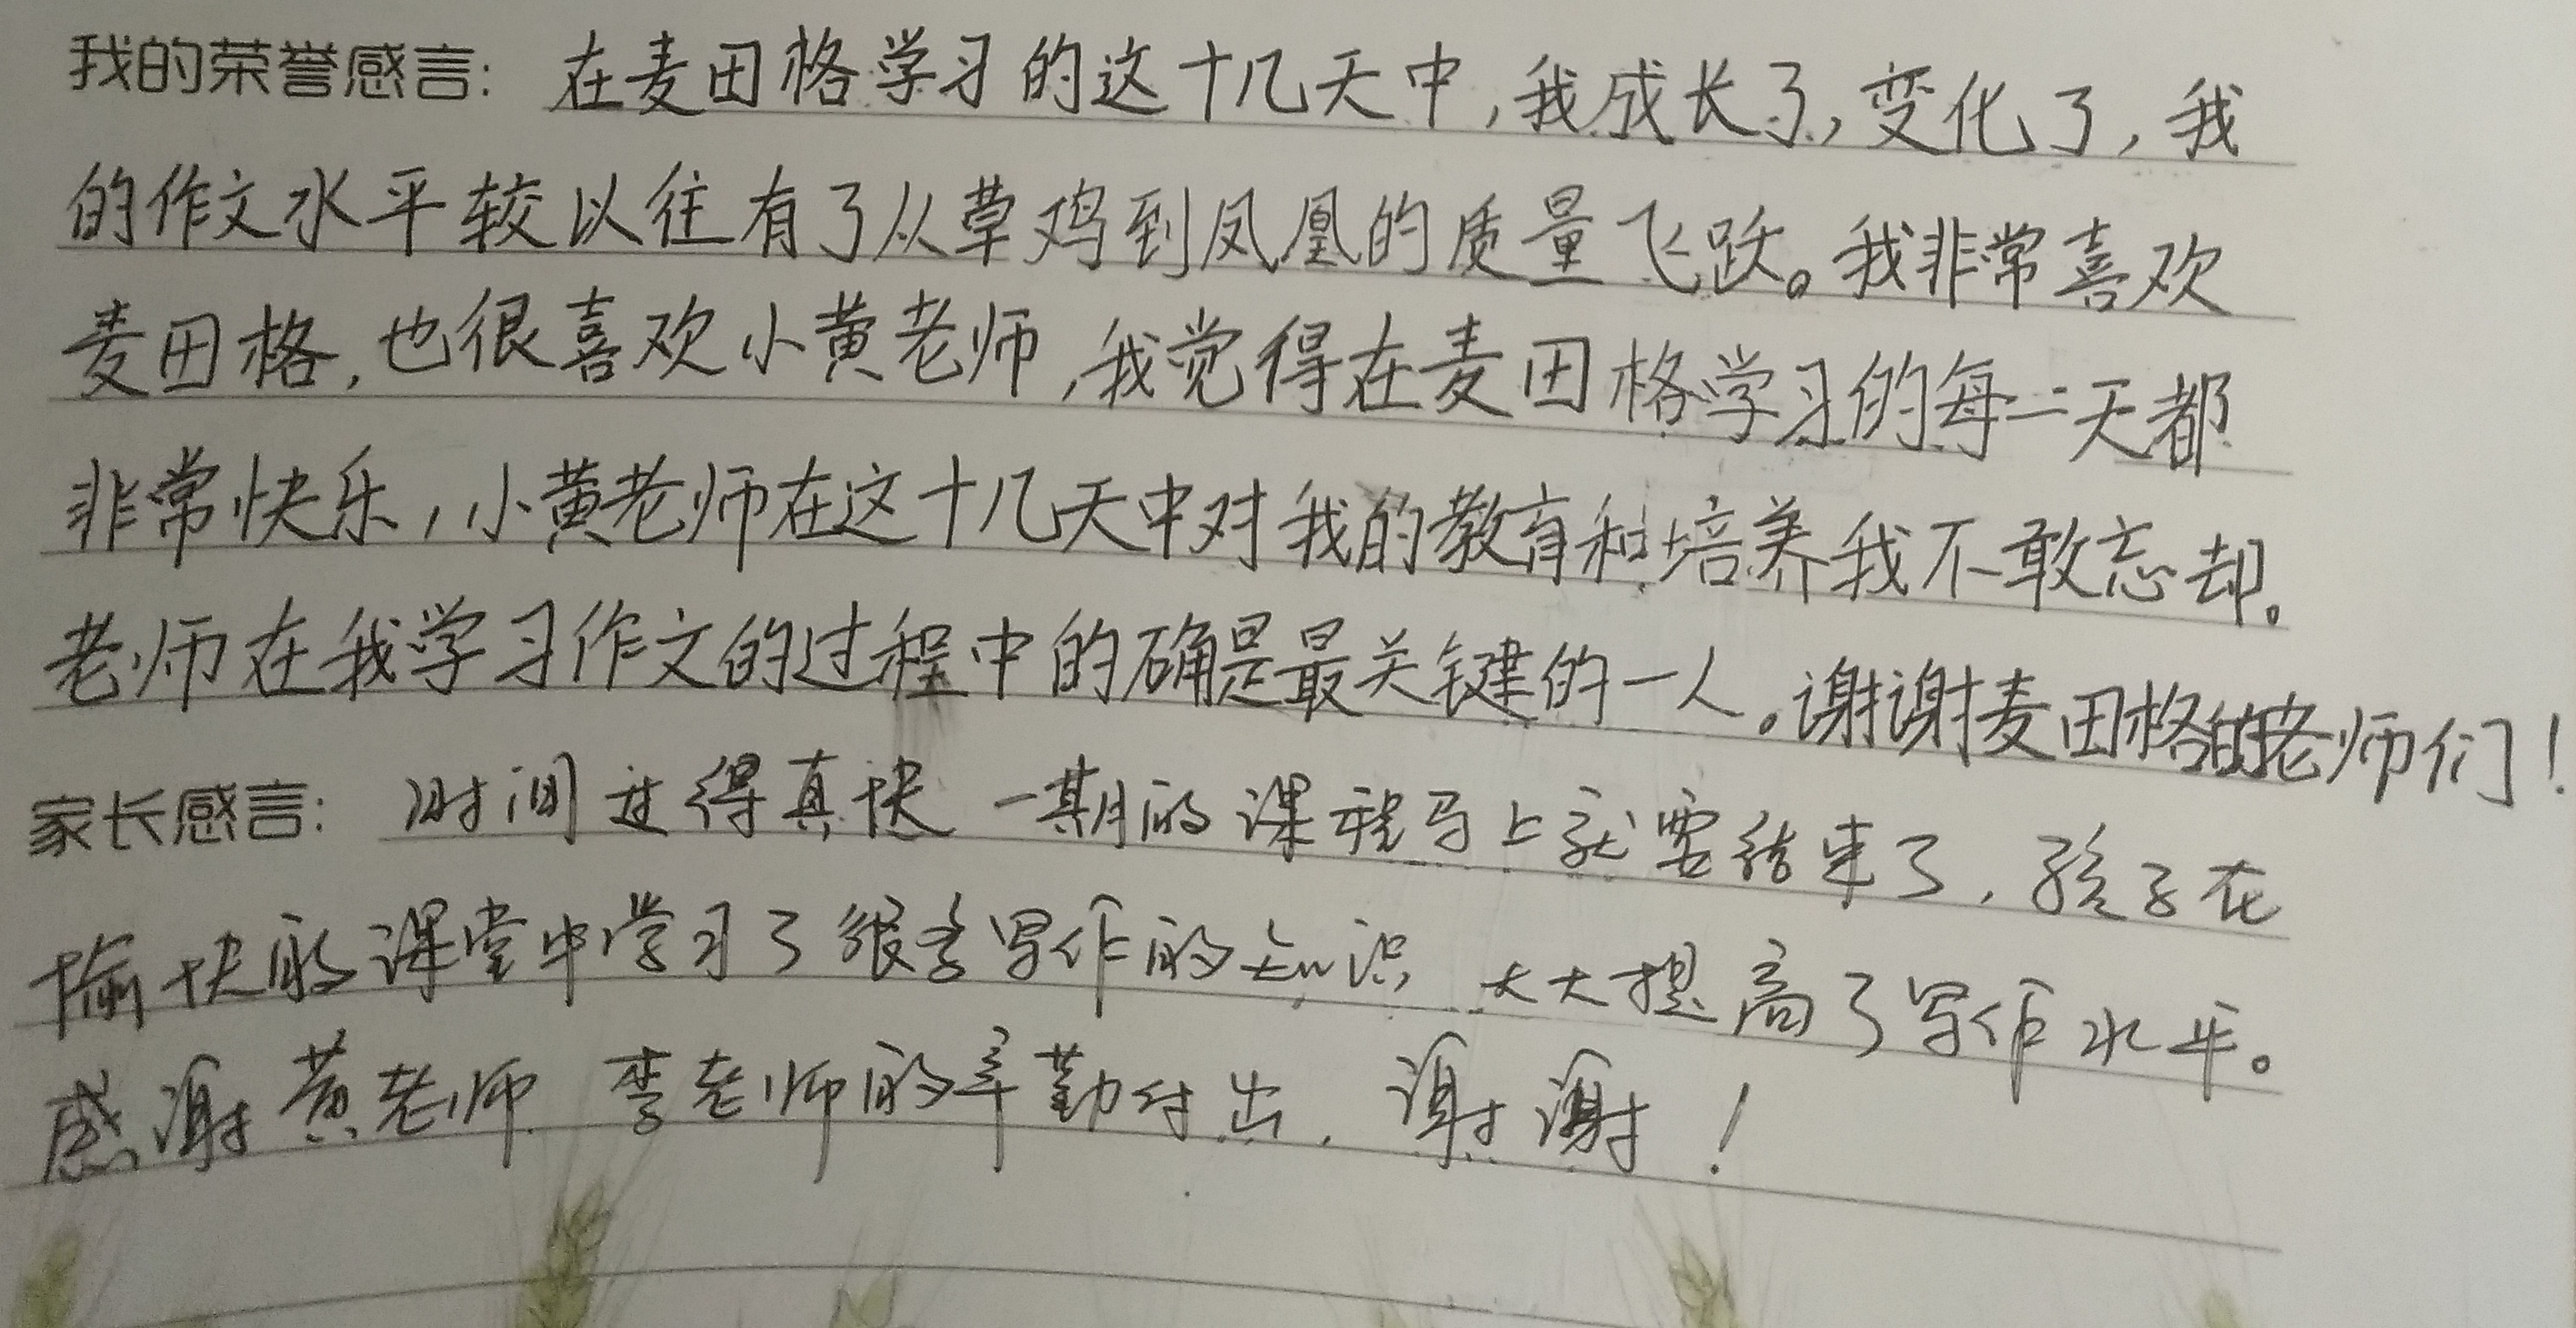 我的荣誉感言: 在麦田格学习的这十几天中,我成长了,变化了,我
的作文水平较以往有了从草鸡到凤凰的质量飞跃。我非常喜欢
麦田格,也很喜欢小黄老师,我觉得在麦田格学习的每一天都
非常快乐,小黄老师在这十几天中对我的教育和培养我不敢忘却。
老师在我学习作文的过程中的确是最关键的一人。谢谢麦田格的老师们!
家长感言: 时间过得真快 一期的课程马上就要结束了,孩子在
愉快的课堂中学习了很多写作的知识 大大提高了写作水平。
感谢黄老师 李老师的辛勤付出,谢谢!